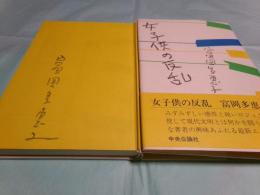 富岡多恵子
女子供の反乱
富岡多恵子
女子供の反乱 富岡多恵
みずみずしい感性と鋭いロジッ
使して現代文明とは何かを鋭く
な著者の興味あふれる最新エ
中央公論社